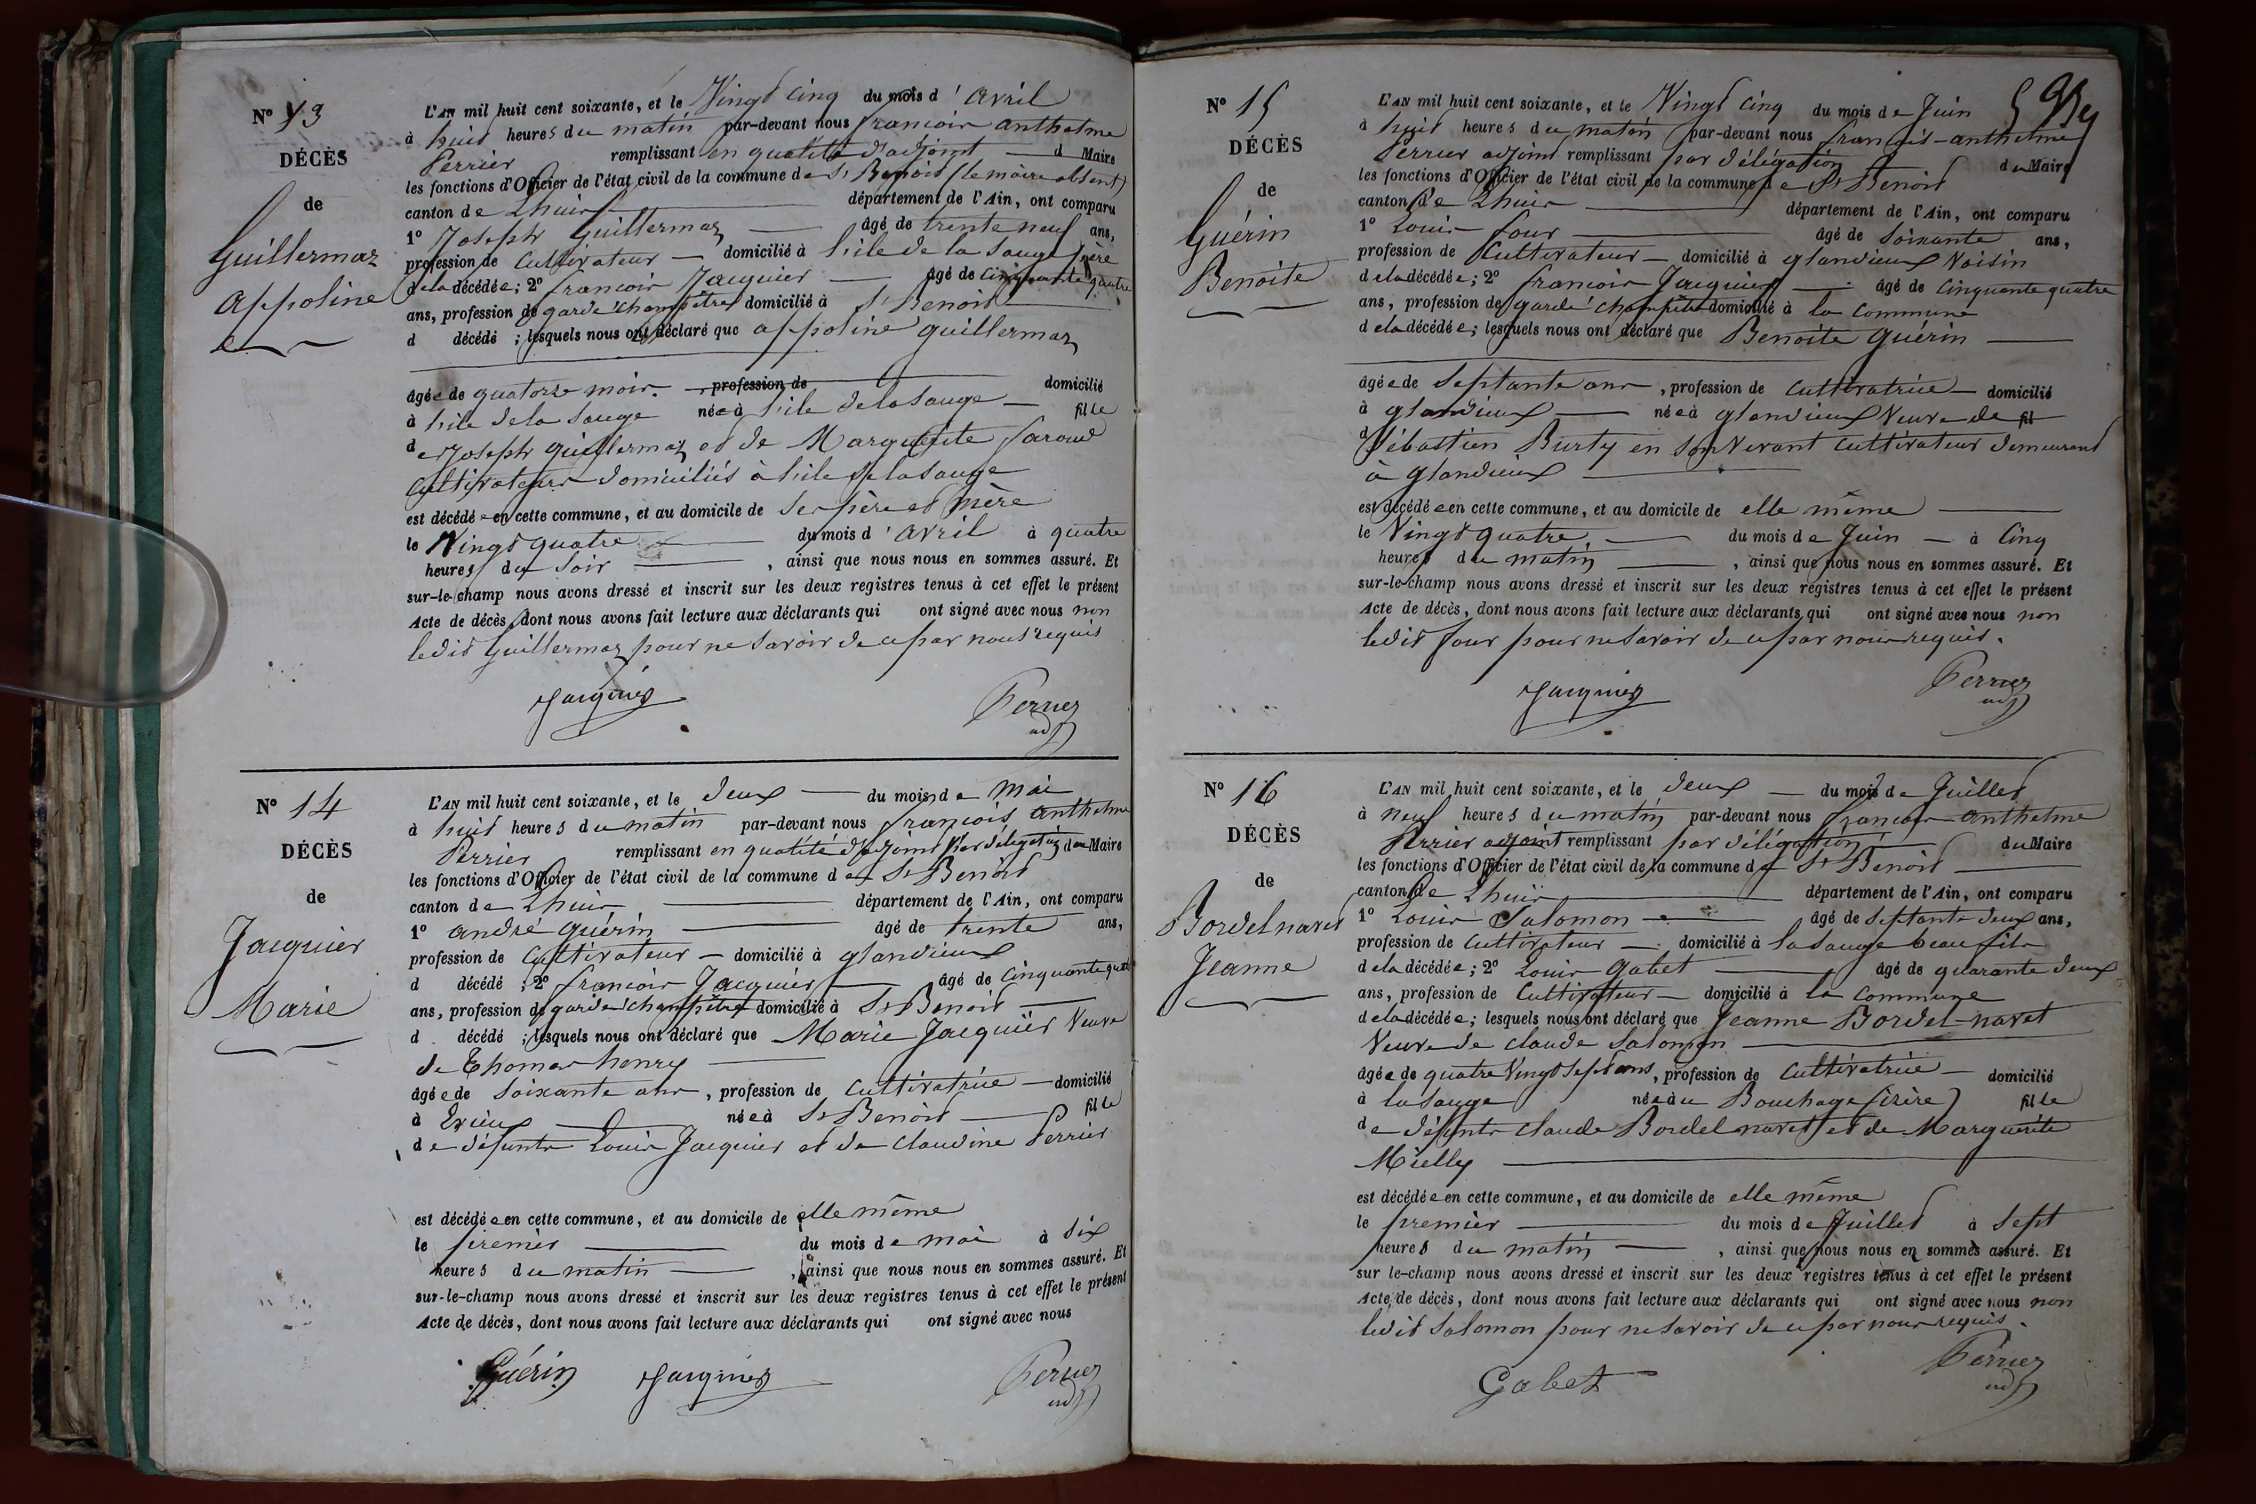 N° 13
DÉCÈS
de
Guillermaz
appoline
L'AN mil huit cent soixante, et le Vingt cinq du mois d'avril
à huit heures du matin par-devant nous francois anthelme
Perrier remplissant en qualité d'adjoint d Maire
les fonctions d'Officier de l'état civil de la commune de St Benoit (le maire absent)
canton de Lhuis département de l'Ain, ont comparu
1° Joseph Guillermaz âgé de trente neuf ans,
profession de Cultivateur domicilié à l'ile de la Sauge père
de la décédée; 2° francois Jacquier âgé de cinquante quatre
ans, profession de garde champêtre domicilié à St Benoit
d décédé ; lesquels nous ont déclaré que appoline guillermaz
âgée de quatorze mois. profession de domicilié
à l'ile de la Sauge née à l'ile de la Sauge fille
de Joseph guillermaz et de Marguerite
Cultivateurs domiciliés à l'ile de la Sauge
est décédée en cette commune, et au domicile de Ses père et mère
le Vingt quatre du mois d'avril à quatre
heures du Soir , ainsi que nous nous en sommes assuré. Et
sur-le-champ nous avons dressé et inscrit sur les deux registres tenus à cet effet le présent
Acte de décès, dont nous avons fait lecture aux déclarants qui ont signé avec nous non
ledit Guillermaz pour ne Savoir de ce par nous requis
Jacquier Perrier
adj
N° 14
DÉCÈS
de
Jacquier
Marie
L'AN mil huit cent soixante, et le deux du mois de mai
à huit heures du matin par-devant nous françois anthelme
Perrier remplissant en qualité d'adjoint par délégation du Maire
les fonctions d'Officier de l'état civil de la commune de St Benoit
canton de Lhuis département de l'Ain, ont comparu
1° andré guérin âgé de trente ans,
profession de Cultivateur domicilié à glandieux
d décédé ; 2° francois Jacquier âgé de cinquante quatre
ans, profession de garde champêtre domicilié à St Benoit
d décédé ; lesquels nous ont déclaré que Marie Jacquier Veuve
de Thomas henry
âgée de soixante ans, profession de cultivatrice domicilié
à Evieux née à St Benoit fille
de défunts Louis Jacquier et de claudine Perrier
est décédée en cette commune, et au domicile de elle même
le premier du mois de mai à six
heures du matin , ainsi que nous nous en sommes assuré. Et
sur-le-champ nous avons dressé et inscrit sur les deux registres tenus à cet effet le présent
Acte de décès, dont nous avons fait lecture aux déclarants qui ont signé avec nous
Guérin Jacquier Perrier
adj
N° 15
DÉCÈS
de
Guérin
Benoite
L'AN mil huit cent soixante, et le Vingt cinq du mois de Juin
à huit heures du matin par-devant nous françois-anthelme
Perrier adjoint remplissant par délégation du Maire
les fonctions d'Officier de l'état civil de la commune de St Benoit
canton de Lhuis département de l'Ain, ont comparu
1° Louis four âgé de Soixante ans,
profession de Cultivateur domicilié à glandieux Voisin
de la décédée; 2° francois Jacquier âgé de cinquante quatre
ans, profession de garde champêtre domicilié à la commune
de la décédée; lesquels nous ont déclaré que Benoite guérin
âgée de Septante ans, profession de cultivatrice domicilié
à glandieux née à glandieux Veuve de fil
d Sébastien Burty en Son Vivant cultivateur demeurant
à glandieux
est décédée en cette commune, et au domicile de elle même
le Vingt quatre du mois de Juin à cinq
heures du matin , ainsi que nous nous en sommes assuré. Et
sur-le-champ nous avons dressé et inscrit sur les deux registres tenus à cet effet le présent
Acte de décès, dont nous avons fait lecture aux déclarants qui ont signé avec nous non
ledit four pour ne Savoir de ce par nous requis.
Jacquier Perrier
adj
N° 16
DÉCÈS
de
Bordelnavet
Jeanne
L'AN mil huit cent soixante, et le deux du mois de Juillet
à neuf heures du matin par-devant nous francois anthelme
Perrier adjoint remplissant par délégation du Maire
les fonctions d'Officier de l'état civil de la commune de St Benoit
canton de Lhuis département de l'Ain, ont comparu
1° Louis Salomon âgé de Septante deux ans,
profession de Cultivateur domicilié à la Sauge beau fils
de la décédée; 2° Louis Gabet âgé de quarante deux
ans, profession de Cultivateur domicilié à la commune
de la décédée; lesquels nous ont déclaré que Jeanne Bordel-navet
Veuve de claude Salomon
âgée de quatre Vingt Sept ans, profession de cultivatrice domicilié
à la Sauge née au Bouchage (isère) fille
de défunts claude Bordel navet et de Marguerite
Mielly
est décédée en cette commune, et au domicile de elle même
le premier du mois de Juillet à Sept
heures du matin , ainsi que nous nous en sommes assuré. Et
sur le-champ nous avons dressé et inscrit sur les deux registres tenus à cet effet le présent
Acte de décès, dont nous avons fait lecture aux déclarants qui ont signé avec nous non
ledit Salomon pour ne Savoir de ce par nous requis.
Gabet Perrier
adj